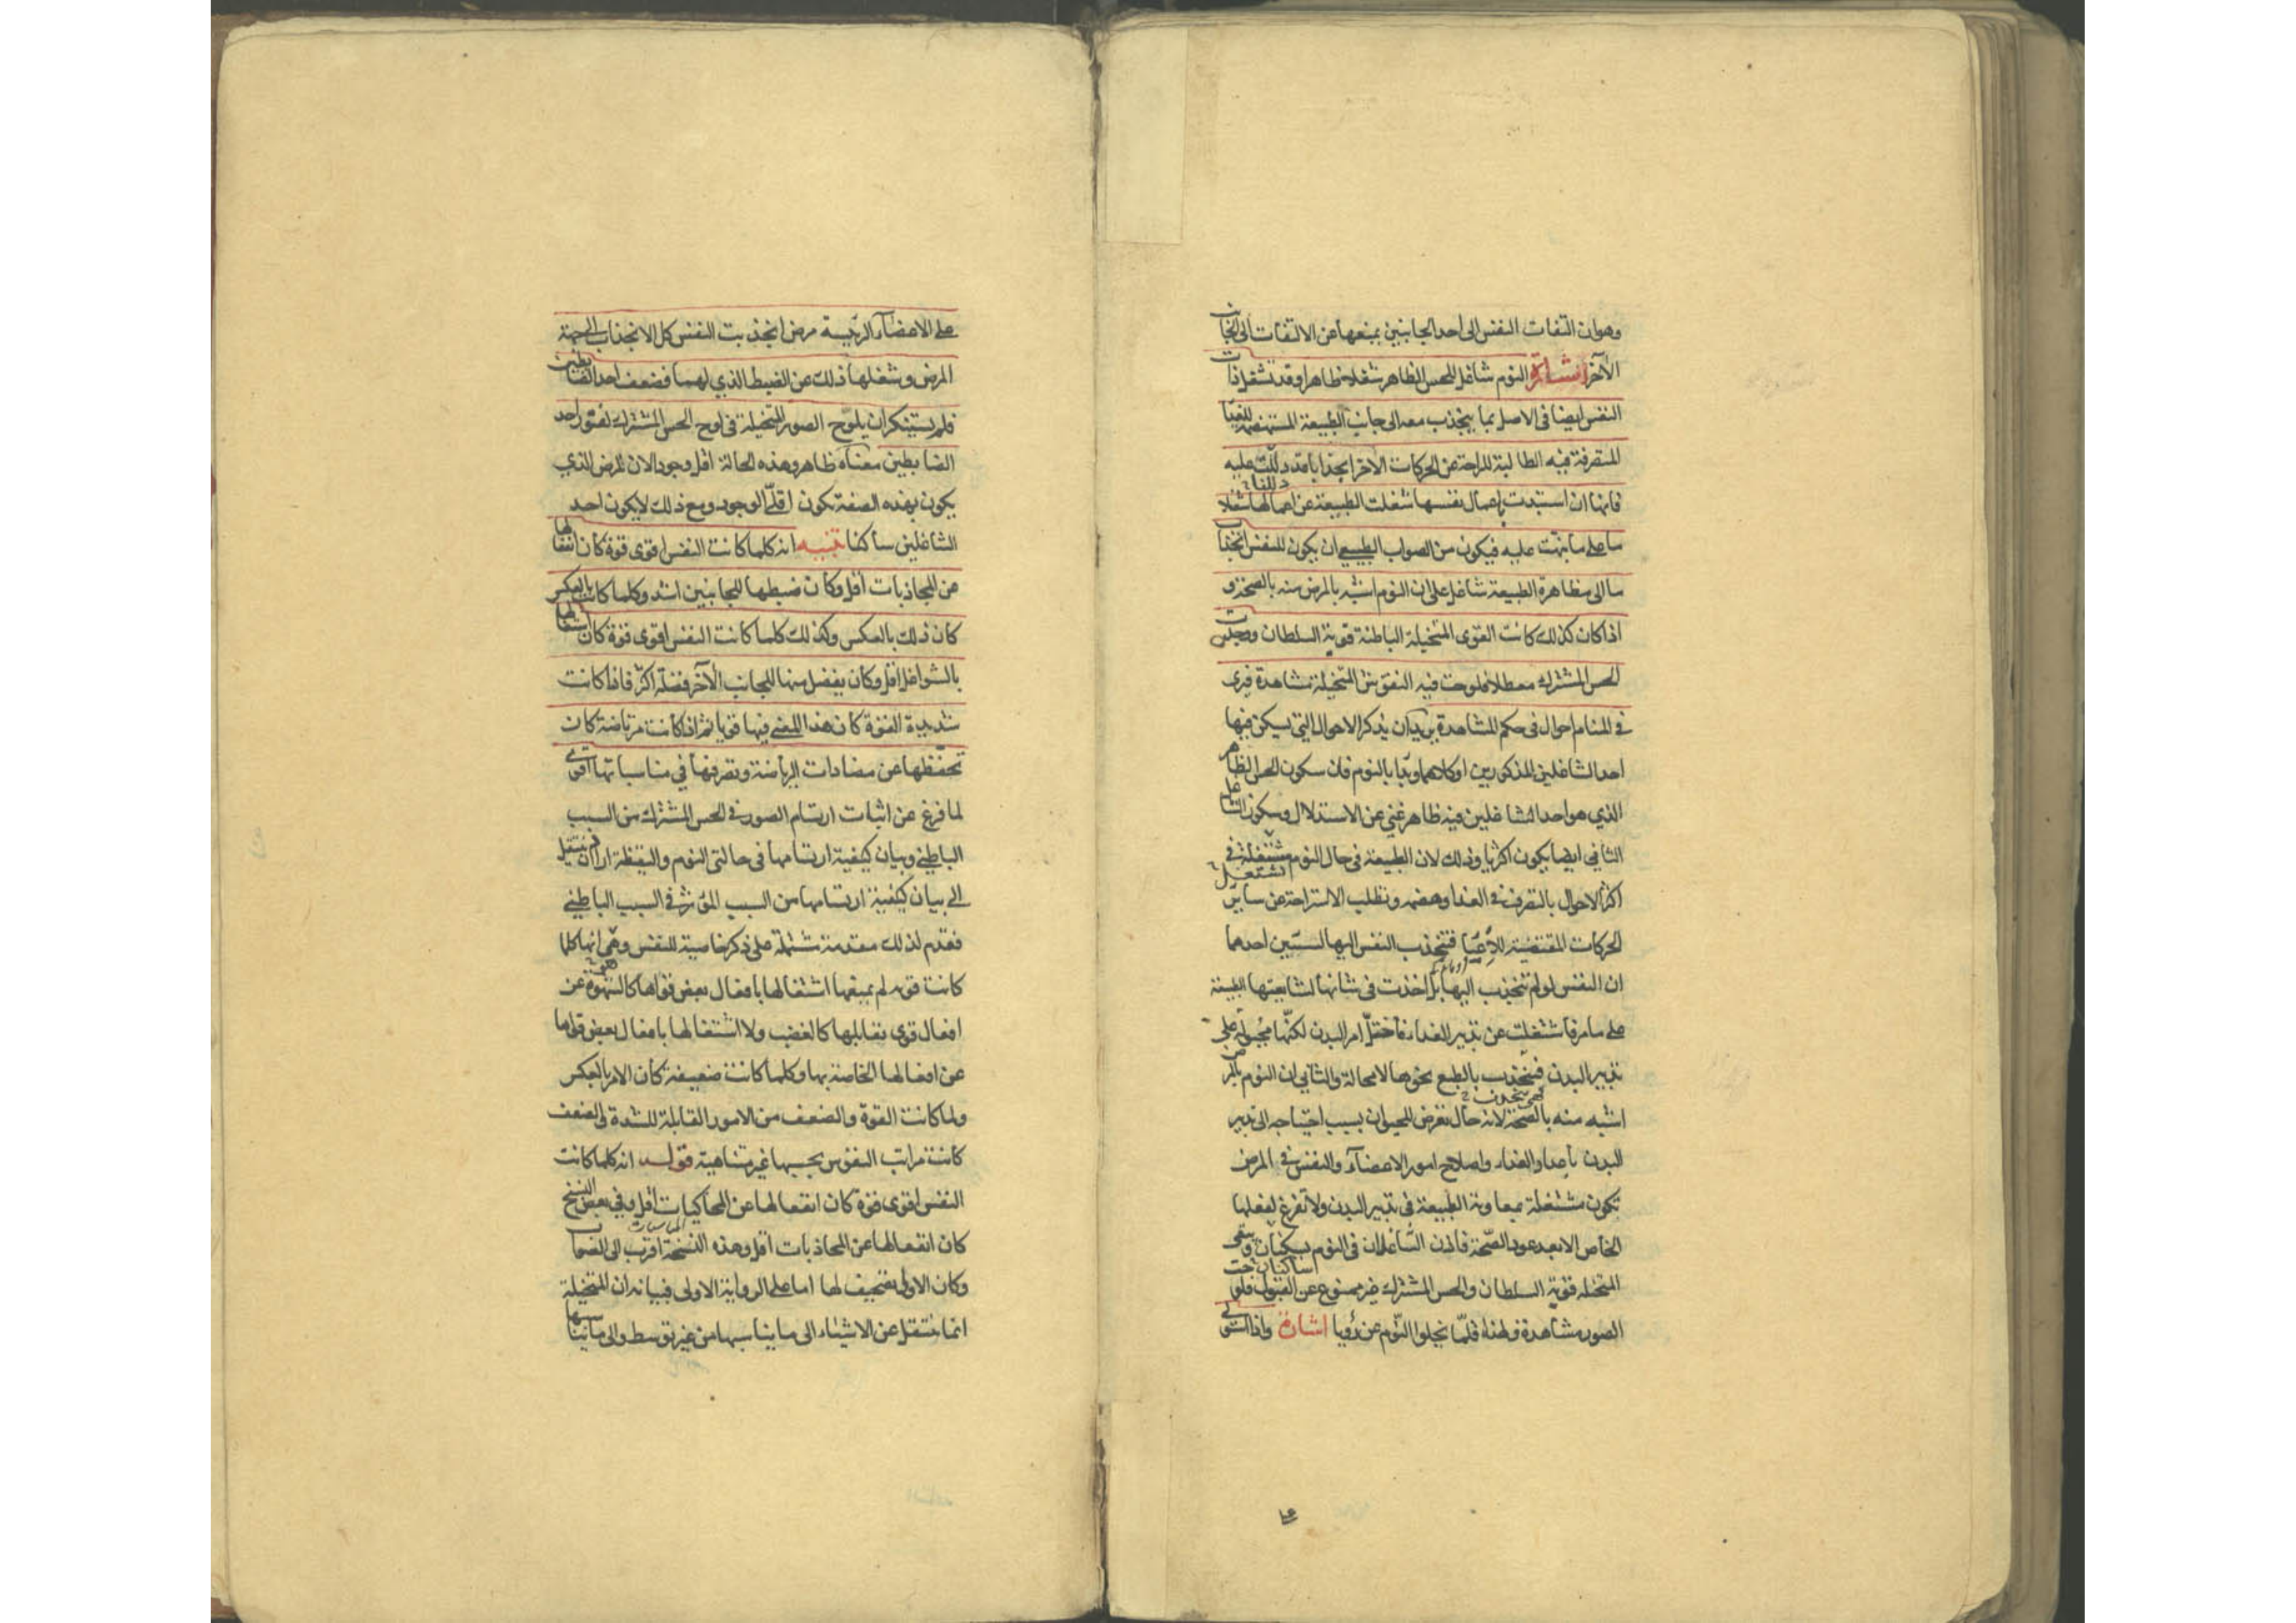 وهوان التفات النفس الى احد الجانبين يمنعها عن الالتفات الى الجانب
الآخر اشارة النوم شاغل للحس الظاهر شغلا ظاهرا وقد تشغل ذات
النفس ايضا فى الاصل بما ينجذب معه الى جانب الطبيعة المستهضمة للغذا
المتصرفة فيه الطالبة للراحة عن الحركات الاخر انجذابا قد دللت عليه
فانها ان استبدت باعمال نفسها شغلت الطبيعة عن اعمالها شغلا
ما على ما نبهت عليه فيكون من الصواب الطبيعى ان يكون للنفس انجذاب
ما الى مظاهرة الطبيعة شاغل على ان النوم اشبه بالمرض منه بالصحة و
اذا كان كذلك كانت القوى المتخيلة الباطنة قوية السلطان ووجدت
الحس المشترك معطلا فلوحت فيه النقوش المتخيلة مشاهدة فيرى
فى المنام احوال فى حكم المشاهدة يريد ان يذكر الاحوال التى يسكن فيها
احد الشاغلين المذكورين او كلاهما وبدا بالنوم فان سكون الحس الظاهر
الذي هو احد الشاغلين فيه ظاهر غنى عن الاستدلال وسكون الشاغل
الثانى ايضا يكون اكثريا وذلك لان الطبيعة فى حال النوم مشتغلة فى
تشتغل
اكثر الاحوال بالتصرف فى الغذا وهضمه وتطلب الاستراحة عن ساير
الحركات المقتضية للأعيا فتنجذب النفس اليها لسببين احدهما
ان النفس لو لم تنجذب اليها بل اخذت فى شانها لشايعتها الطبيعة
على ما مر فاشتغلت عن تدبير الغذاء فاختل امر البدن لكنها مجبولة على
تدبير البدن فتنجذب بالطبع نحوها لا محالة والثانى ان النوم بالمرض
اشبه منه بالصحة لانه حال تعرض للحيوان بسبب احتياجه الى تدبير
البدن باعداد الغذاء واصلاح امور الاعضآء والنفس فى المرض
تكون مشتغلة بمعاونة الطبيعة فى تدبير البدن ولا تفرغ لفعلها
الخاص الا بعد عود الصحة فاذن الشاغلان فى النوم يسكنان وتبقى
المتخيلة قوية السلطان والحس المشترك غير ممنوع عن القبول فلوحت
الصور مشاهدة ولهذا قلما يخلو النوم عن رؤيا اشارة واذا استولى
على الاعضآء الرئيسة مرض انجذبت النفس كل الانجذاب الى جهة
المرض وشغلها ذلك عن الضبط الذي لها فضعف احد الضابطين
فلم يستنكر ان يلوح الصور المتخيلة فى لوح الحس المشترك لفتور احد
الضابطين معناه ظاهر وهذه الحالة اقل وجودا لان المرض الذي
يكون بهذه الصفة يكون اقلى الوجود ومع ذلك لا يكون احد
الشاغلين ساكنا تنبيه انه كلما كانت النفس اقوى قوة كان انفعالها
عن المجاذبات اقل وكان ضبطها للجانبين اشد وكلما كانت بالعكس
كان ذلك بالعكس وكذلك كلما كانت النفس اقوى قوة كان اشتغالها
بالشواغل اقل وكان يفضل منها للجانب الآخر فضلة اكثر فاذا كانت
شديدة القوة كان هذا المعنى فيها قويا ثم اذا كانت مرتاضة كان
تحفظها عن مضادات الرياضة وتصرفها فى مناسباتها اقوى
لما فرغ عن اثبات ارتسام الصور فى الحس المشترك من السبب
الباطنى وبيان كيفية ارتسامها فى حالتى النوم واليقظة اراد ان ينتقل
الى بيان كيفية ارتسامها من السبب المؤثر فى السبب الباطنى
فقدم لذلك مقدمة مشتملة على ذكر خاصية للنفس وهى انها كلما
كانت قوية لم يمنعها اشتغالها بافعال بعض قواها كالشهوة عن
افعال قوى تقابلها كالغضب ولا اشتغالها بافعال بعض قواها
عن افعالها الخاصة بها وكلما كانت ضعيفة كان الامر بالعكس
ولما كانت القوة والضعف من الامور القابلة للشدة والضعف
كانت مراتب النفوس بحسبها غير متناهية قوله انه كلما كانت
النفس اقوى قوة كان انفعالها عن المحاكيات اقل وفى بعض النسخ
كان انفعالها عن المجاذبات اقل وهذه النسخة اقرب الى الصواب
وكان الاولى تصحيف لها اما على الرواية الاولى فبيانه ان المتخيلة
انما ينتقل عن الاشياء الى ما يناسبها من غير توسط والى ما يناسبها